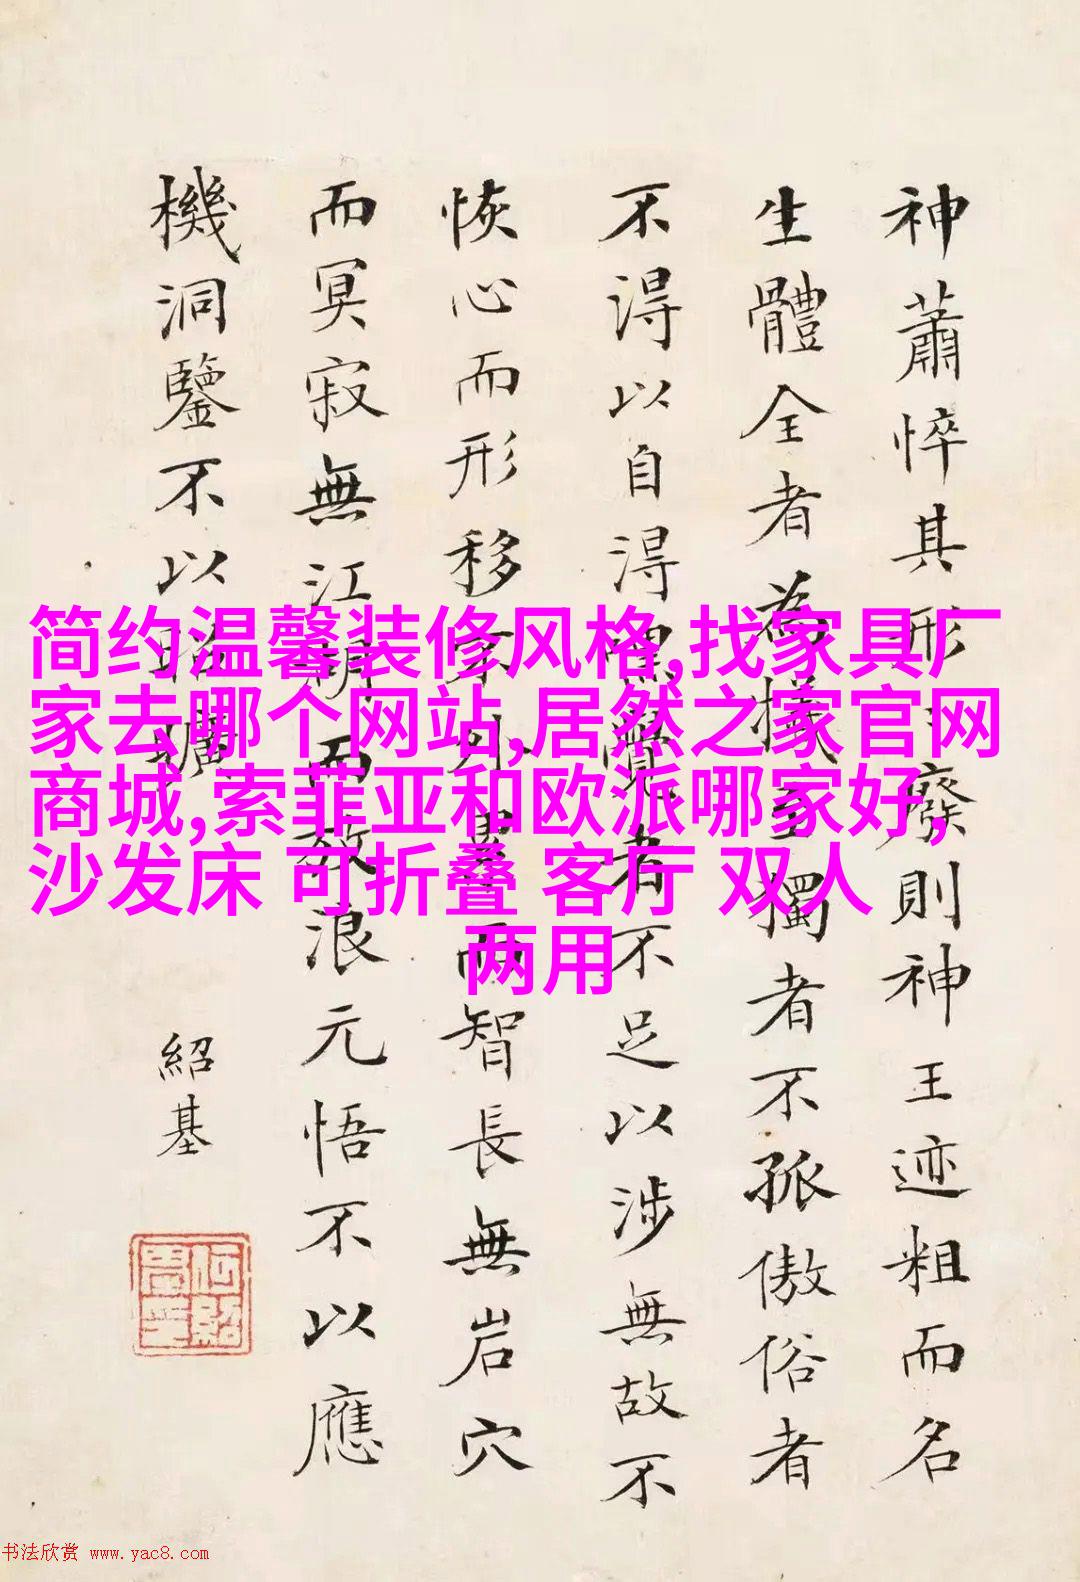 神蕭悴其形廢則神王迹粗而名
生體全者為犧獨者不孤傲俗者
不得以自得嘿覺者不足以涉無故不
恢心而形移外累而智長無岩穴
而冥寂無江湖而放浪元悟不以應
機洞鑒不以昭曠
紹基
简约温馨装修风格,找家具厂
家去哪个网站,居然之家官网
商城,索菲亚和欧派哪家好,
沙发床 可折叠 客厅 双人
两用
书法欣赏 www.yac8.com